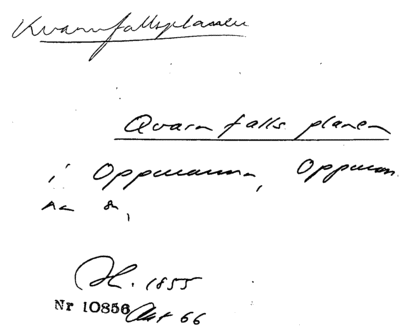 Kvarnfallsplanen
Qvarn falls planen
i Oppmanna, Oppman
na
1855
Nr 10856 Akt 66